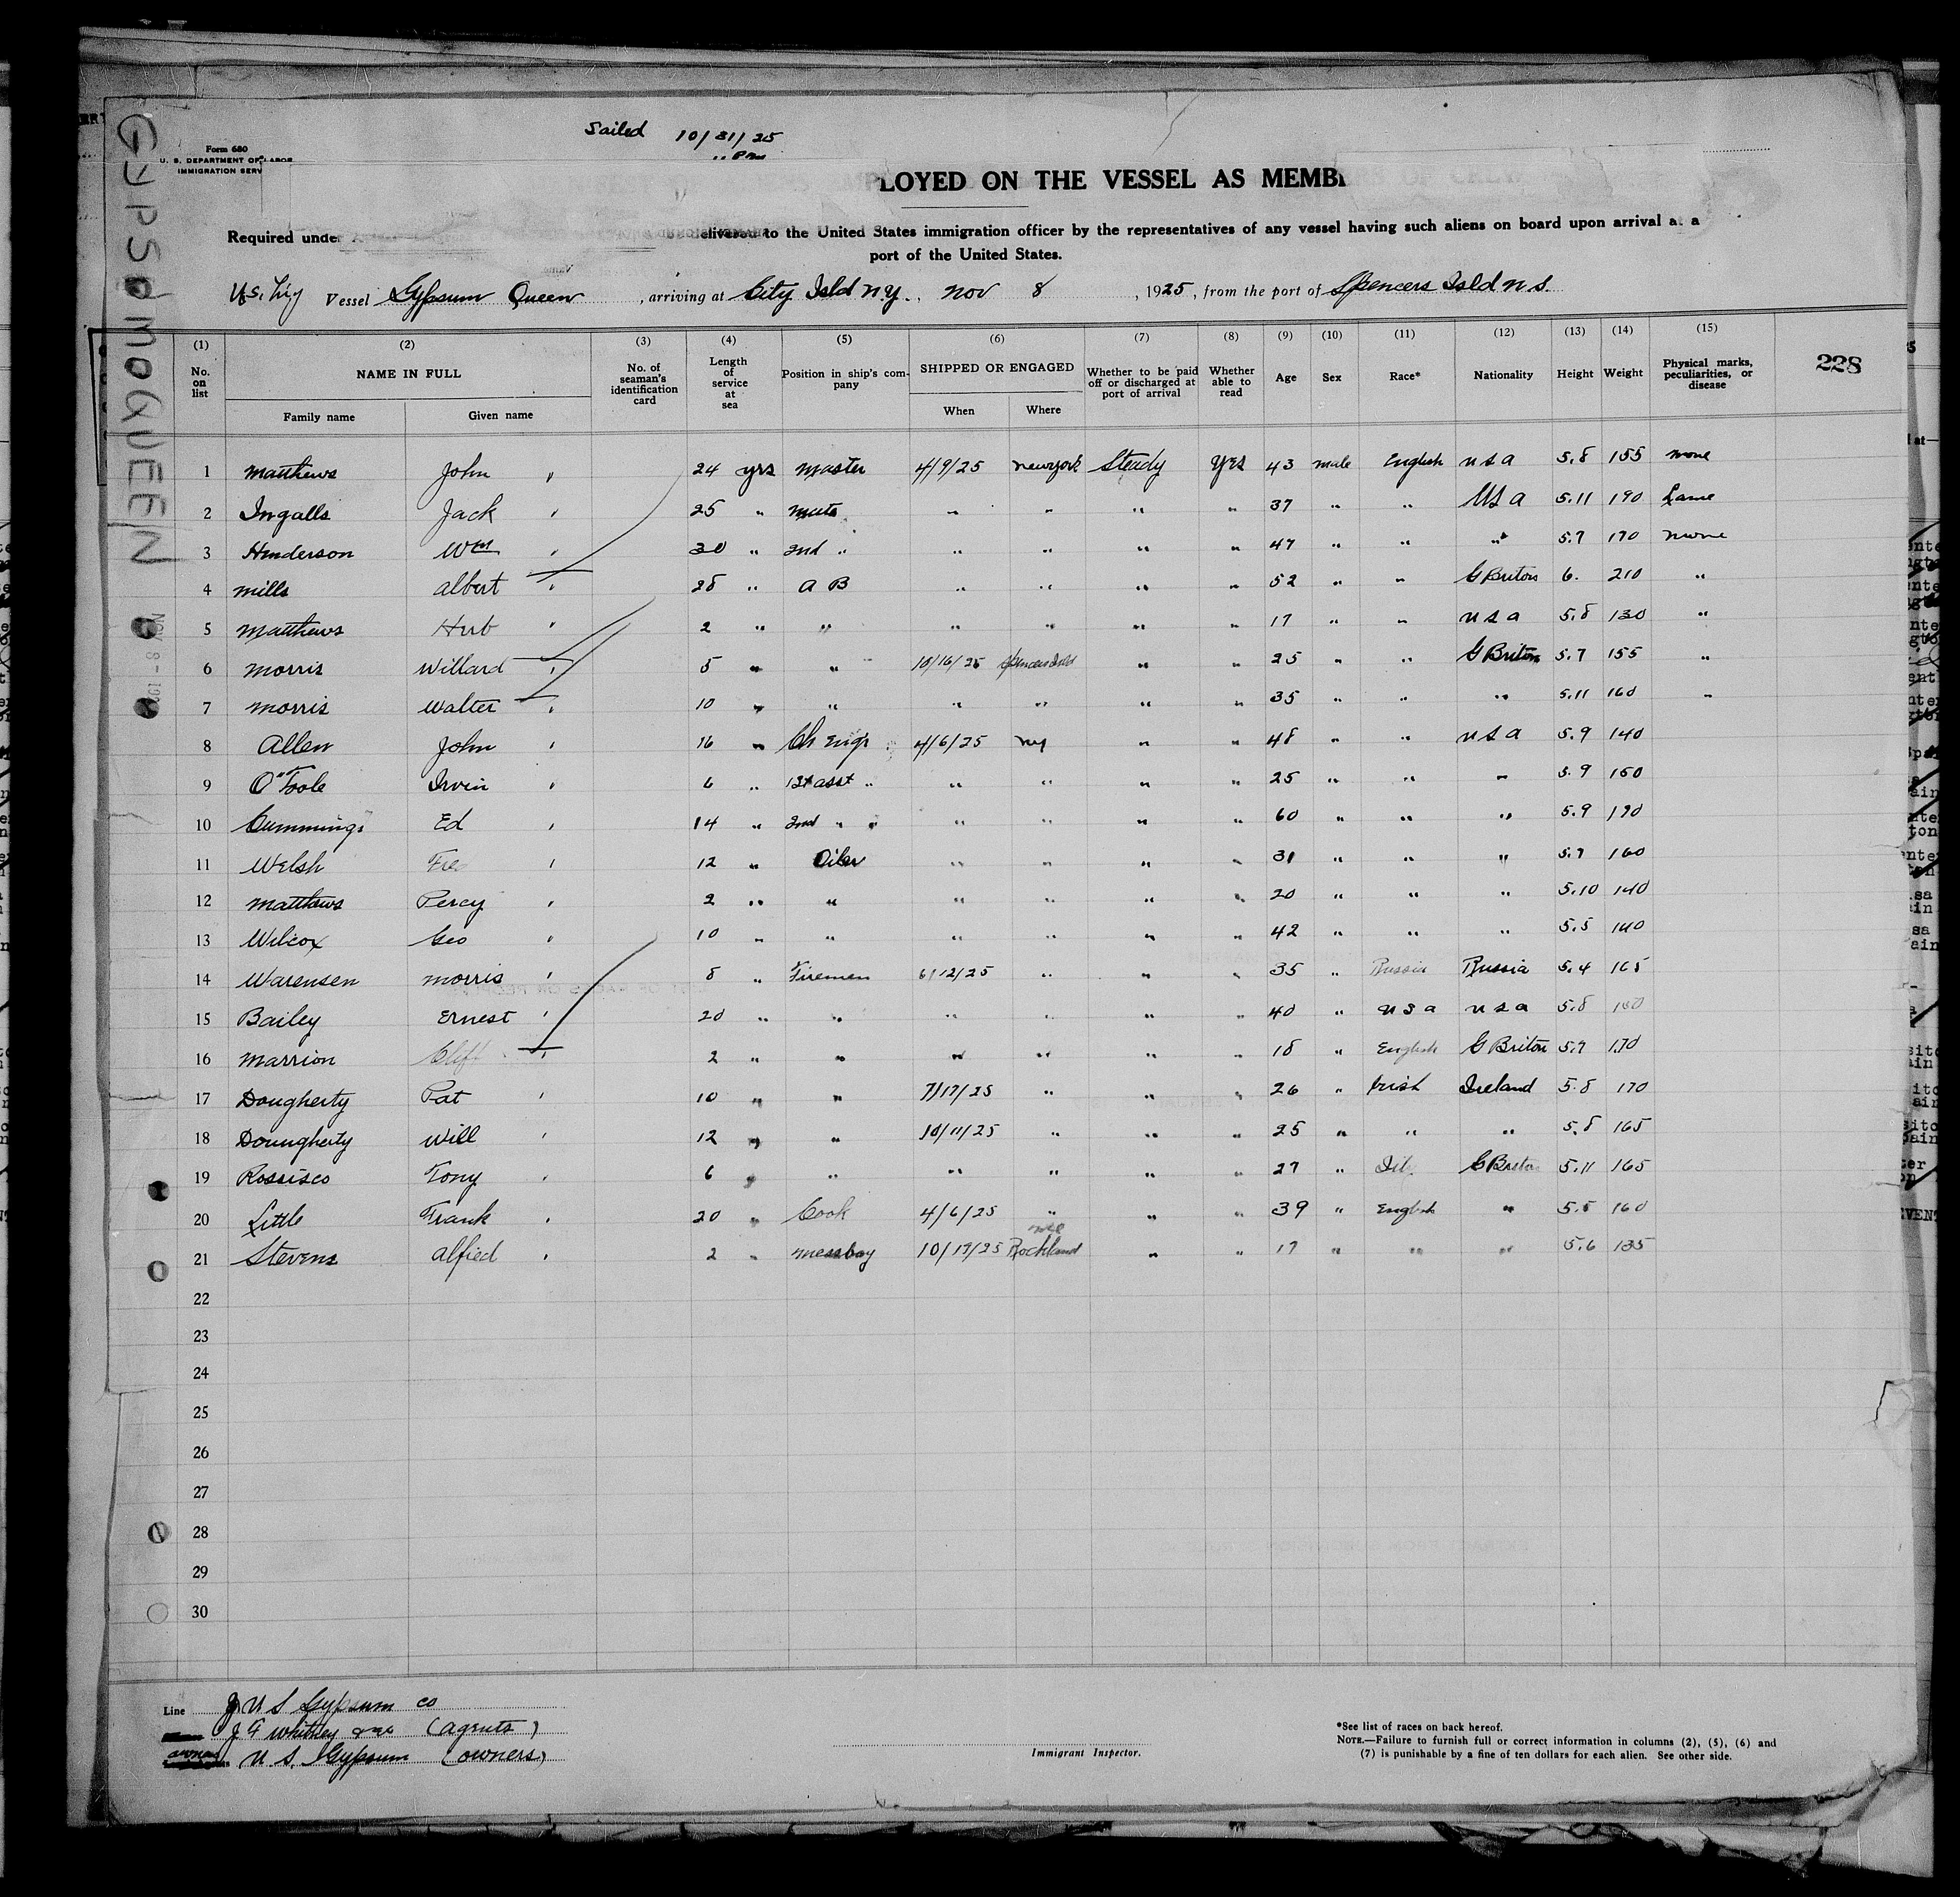 Sailed 10/31/25
Form 680
U. S. DEPARTMENT OF LABOR
IMMIGRATION SERV
LOYED ON THE VESSEL AS MEMB
Required under
be delivered to the United States immigration officer by the representatives of any vessel having such aliens on board upon arrival at a
port of the United States.
Vessel Gypsum Queen, arriving at City Isld N.Y., Nov 8, 1925, from the port of Spencers Isld N.S.
GYPSUM QUEEN
228
(1) (2) (3) (4) (5) (6) (7) (8) (9) (10) (11) (12) (13) (14) (15)
No. on list NAME IN FULL Family name Given name No. of seaman's identification card Length of service at sea Position in ship's company SHIPPED OR ENGAGED When Where Whether to be paid off or discharged at port of arrival Whether able to read Age Sex Race* Nationality Height Weight Physical marks, peculiarities, or disease
1 Matthews John " 24 yrs Master 4/9/25 New york Steady Yes 43 male English U S A 5.8 155 none
2 Ingalls Jack " 25 " Mate " " " " 37 " " U S A 5.11 190 Lame
3 Henderson Wm " 30 " 2nd " " " " " 47 " " " 5.7 170 none
4 Mills Albert " 28 " A B " " " " 52 " " G Briton 6. 210 "
5 Matthews Herb " 2 " " " " " " 17 " " U S A 5.8 130 "
6 Morris Willard " 5 " " 10/16/25 Spencers Isld " " 25 " " G Briton 5.7 155 "
7 Morris Walter " 10 " " " " " " 35 " " " 5.11 160 "
8 Allen John " 16 " Ch Engr 4/6/25 NY " " 48 " " U S A 5.9 140
9 O'Toole Irvin " 6 " 1st asst " " " " " 25 " " " 5.9 150
10 Cummings Ed " 14 " 2nd " " " " " " 60 " " " 5.9 190
11 Welsh " 12 " Oiler " " " " 31 " " " 5.7 160
12 Matthews Percy " 2 " " " " " " 20 " " " 5.10 140
13 Wilcox Geo " 10 " " " " " " 42 " " " 5.5 140
14 Warensen Morris " 8 " Firemen 6/12/25 " " " 35 " Russia Russia 5.4 165
15 Bailey Ernest " 20 " " " " " " 40 " U S A U S A 5.8
16 Marrion Cliff " 2 " " " " " " 18 " English G Briton 5.7 170
17 Dougherty Pat " 10 " " 7/17/25 " " " 26 " Irish Ireland 5.8 170
18 Doungherty Will " 12 " " 10/11/25 " " " 25 " " " 5.8 165
19 Rossisco Tony " 6 " " " " " " 27 " G Briton 5.11 165
20 Little Frank " 20 " Cook 4/6/25 " " " 39 " English " 5.5 160
21 Stevens Alfied " 2 " messboy 10/19/25 Rockland " " 17 " " " 5.6 135
22
23
24
25
26
27
28
29
30
Line U S Gypsum Co
J F Whitney & Co (agents)
U. S. Gypsum (owners)
Immigrant Inspector.
*See list of races on back hereof.
NOTE.—Failure to furnish full or correct information in columns (2), (5), (6) and
(7) is punishable by a fine of ten dollars for each alien. See other side.